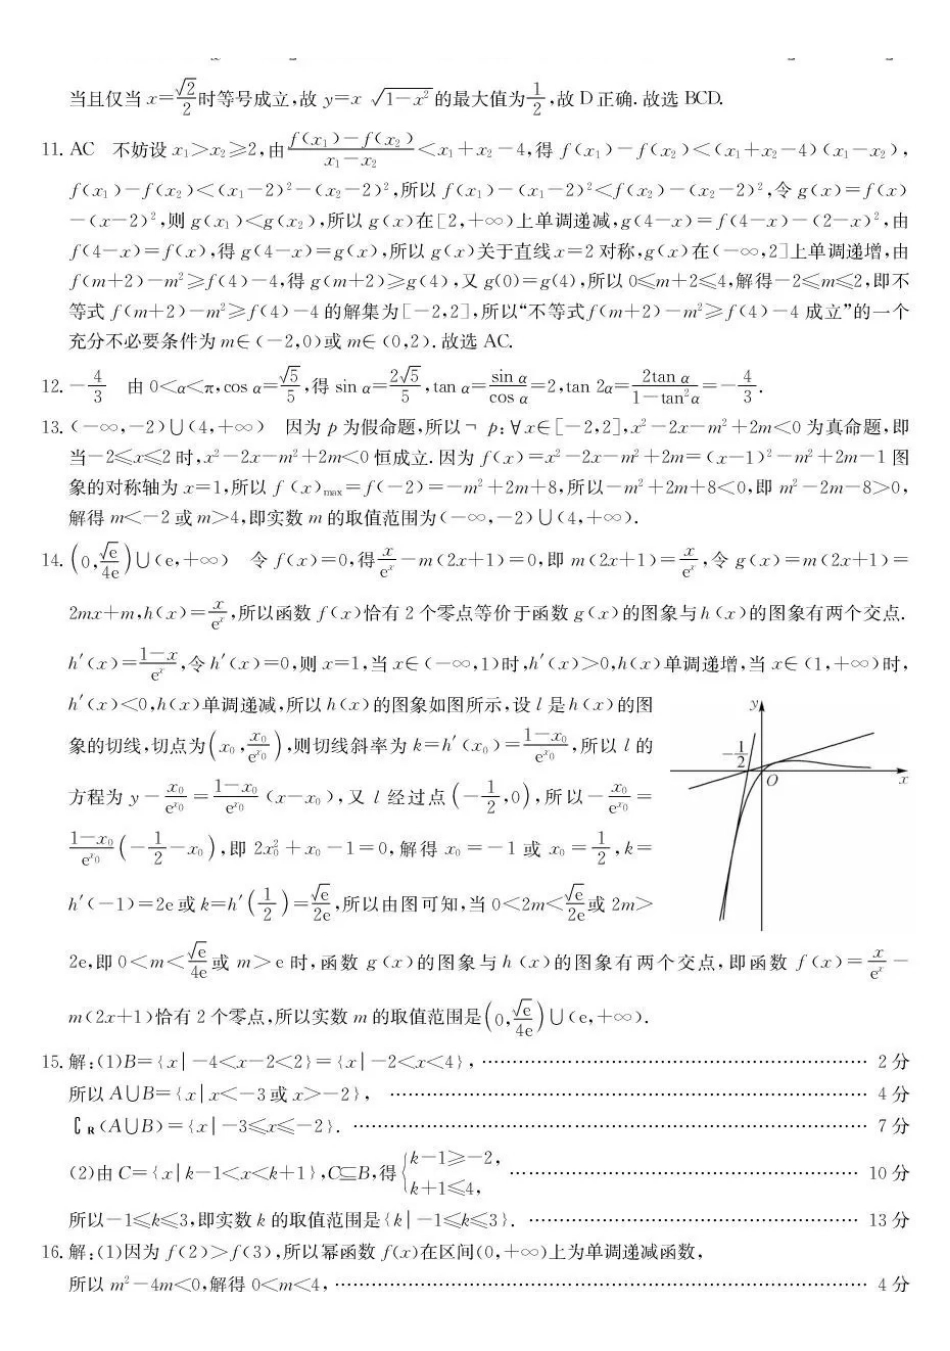 当且仅当 x=√2/2 时等号成立,故 y=x √(1-x²) 的最大值为 1/2,故 D 正确. 故选 BCD.
11. AC 不妨设 x₁>x₂≥2,由 (f(x₁)-f(x₂))/(x₁-x₂)<x₁+x₂-4,得 f(x₁)-f(x₂)<(x₁+x₂-4)(x₁-x₂),
f(x₁)-f(x₂)<(x₁-2)²-(x₂-2)²,所以 f(x₁)-(x₁-2)²<f(x₂)-(x₂-2)²,令 g(x)=f(x)
-(x-2)²,则 g(x₁)<g(x₂),所以 g(x)在[2,+∞)上单调递减,g(4-x)=f(4-x)-(2-x)²,由
f(4-x)=f(x),得 g(4-x)=g(x),所以 g(x)关于直线 x=2 对称,g(x)在(-∞,2]上单调递增,由
f(m+2)-m²≥f(4)-4,得 g(m+2)≥g(4),又 g(0)=g(4),所以 0≤m+2≤4,解得-2≤m≤2,即不
等式 f(m+2)-m²≥f(4)-4 的解集为[-2,2],所以“不等式 f(m+2)-m²≥f(4)-4 成立”的一个
充分不必要条件为 m∈(-2,0)或 m∈(0,2). 故选 AC.
12. -4/3 由 0<α<π,cos α=√5/5,得 sin α=2√5/5,tan α=sin α/cos α=2,tan 2α=2tan α/(1-tan²α)=-4/3.
13. (-∞,-2)∪(4,+∞) 因为 p 为假命题,所以 ¬ p:∀x∈[-2,2],x²-2x-m²+2m<0 为真命题,即
当-2≤x≤2 时,x²-2x-m²+2m<0 恒成立. 因为 f(x)=x²-2x-m²+2m=(x-1)²-m²+2m-1 图
象的对称轴为 x=1,所以 f(x)max=f(-2)=-m²+2m+8,所以-m²+2m+8<0,即 m²-2m-8>0,
解得 m<-2 或 m>4,即实数 m 的取值范围为(-∞,-2)∪(4,+∞).
14. (0,√e/4e)∪(e,+∞) 令 f(x)=0,得 x/eˣ-m(2x+1)=0,即 m(2x+1)=x/eˣ,令 g(x)=m(2x+1)=
2mx+m,h(x)=x/eˣ,所以函数 f(x)恰有 2 个零点等价于函数 g(x)的图象与 h(x)的图象有两个交点.
h′(x)=(1-x)/eˣ,令 h′(x)=0,则 x=1,当 x∈(-∞,1)时,h′(x)>0,h(x)单调递增,当 x∈(1,+∞)时,
h′(x)<0,h(x)单调递减,所以 h(x)的图象如图所示,设 l 是 h(x)的图
象的切线,切点为(x₀,x₀/e^x₀),则切线斜率为 k=h′(x₀)=(1-x₀)/e^x₀,所以 l 的
方程为 y-x₀/e^x₀=(1-x₀)/e^x₀(x-x₀),又 l 经过点(-1/2,0),所以-x₀/e^x₀=
(1-x₀)/e^x₀(-1/2-x₀),即 2x₀²+x₀-1=0,解得 x₀=-1 或 x₀=1/2,k=
h′(-1)=2e 或 k=h′(1/2)=√e/2e,所以由图可知,当 0<2m<√e/2e 或 2m>
y
-1/2
O
x
2e,即 0<m<√e/4e 或 m>e 时,函数 g(x)的图象与 h(x)的图象有两个交点,即函数 f(x)=x/eˣ-
m(2x+1)恰有 2 个零点,所以实数 m 的取值范围是(0,√e/4e)∪(e,+∞).
15. 解:(1)B={x|-4<x-2<2}={x|-2<x<4}, …… 2 分
所以 A∪B={x|x<-3 或 x>-2}, …… 4 分
∁R(A∪B)={x|-3≤x≤-2}. …… 7 分
(2)由 C={x|k-1<x<k+1},C⊆B,得 {k-1≥-2, k+1≤4, …… 10 分
所以-1≤k≤3,即实数 k 的取值范围是{k|-1≤k≤3}. …… 13 分
16. 解:(1)因为 f(2)>f(3),所以幂函数 f(x)在区间(0,+∞)上为单调递减函数,
所以 m²-4m<0,解得 0<m<4, …… 4 分